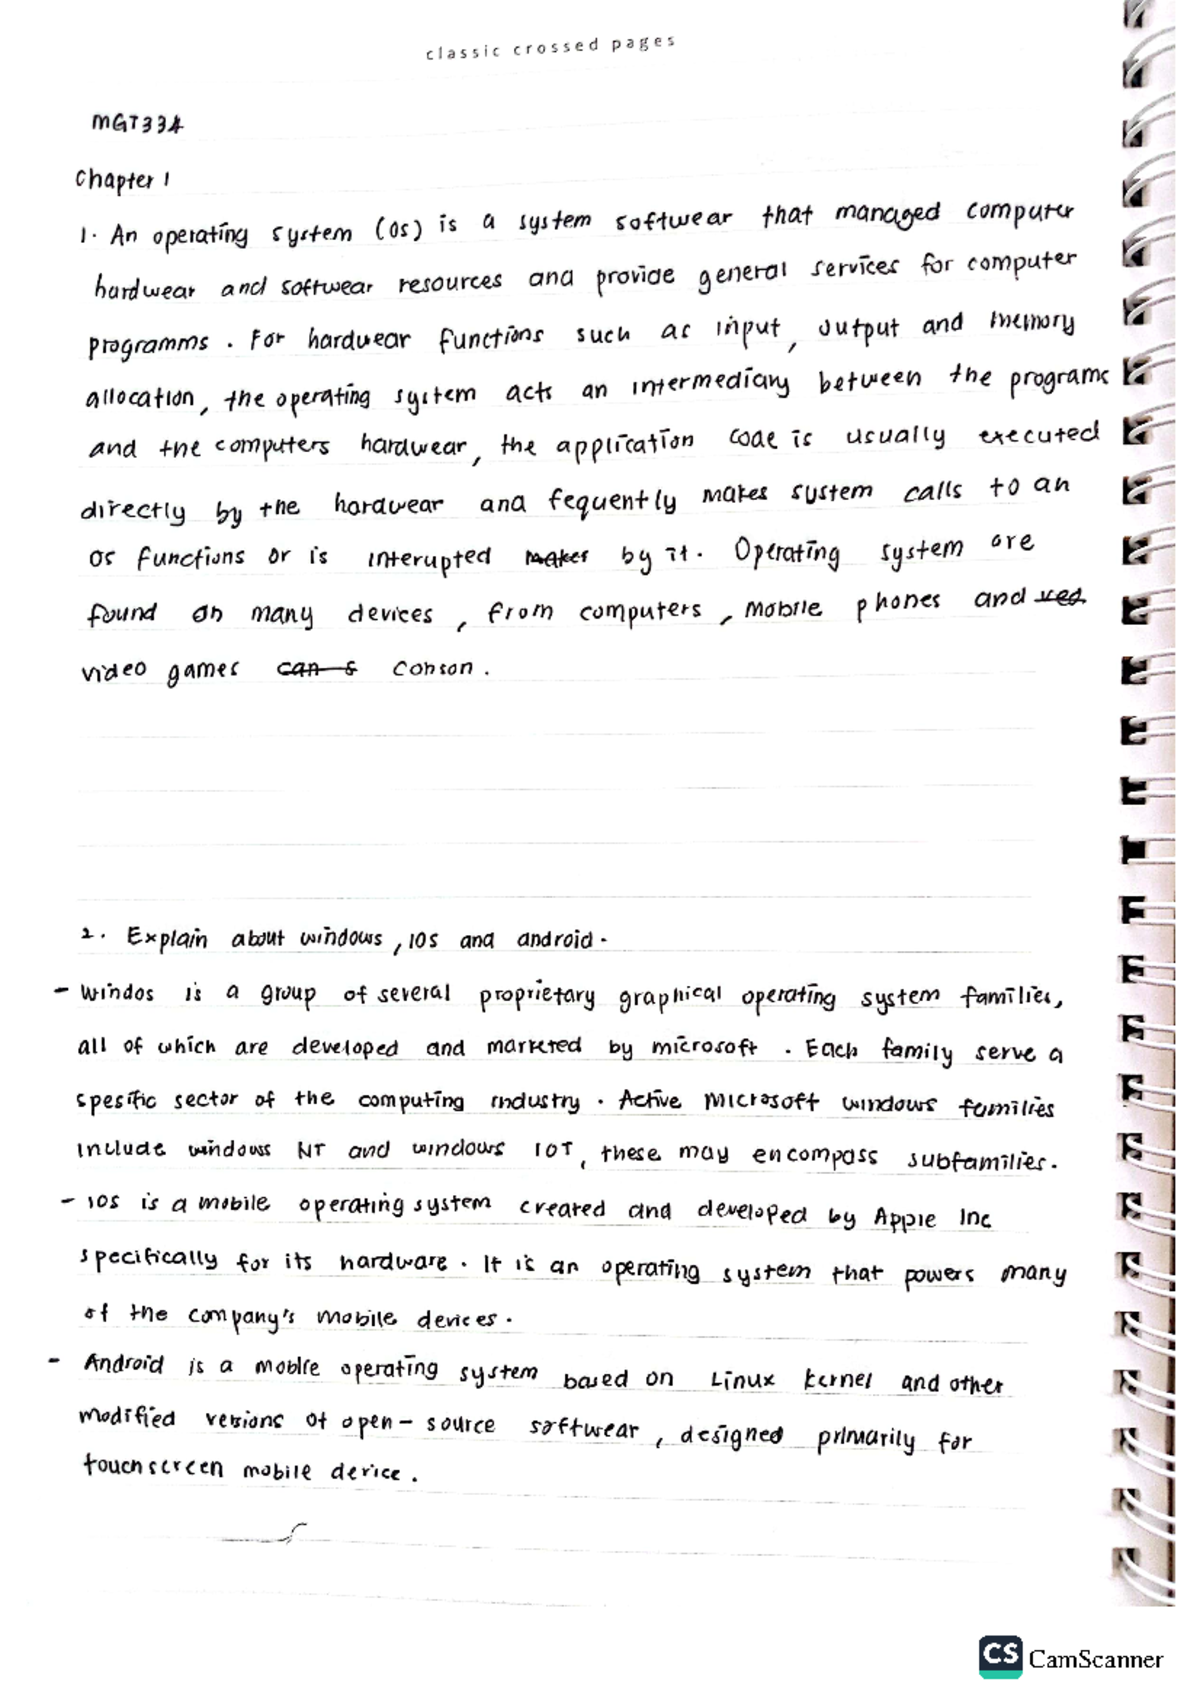 classic crossed pages
MGT334
Chapter 1
1. An operating system (OS) is a system softwear that managed computer
hardwear and softwear resources and provide general services for computer
programms. For hardwear functions such as input, output and memory
allocation, the operating system acts an intermediary between the programs
and the computers hardwear, the application code is usually executed
directly by the hardwear and fequently makes system calls to an
OS functions or is interupted makes by it. Operating system are
found on many devices, from computers, mobile phones and
video games conson.
2. Explain about windows, IOS and android.
- Windos is a group of several proprietary graphical operating system families,
all of which are developed and marketed by microsoft. Each family serve a
spesific sector of the computing industry. Active Microsoft windows families
include windows NT and windows IOT, these may encompass subfamilies.
- IOS is a mobile operating system created and developed by Apple Inc
specifically for its hardware. It is an operating system that powers many
of the company's mobile devices.
- Android is a moblie operating system based on Linux kernel and other
modified versions of open-source softwear, designed primarily for
touchscreen mobile device.
CS CamScanner